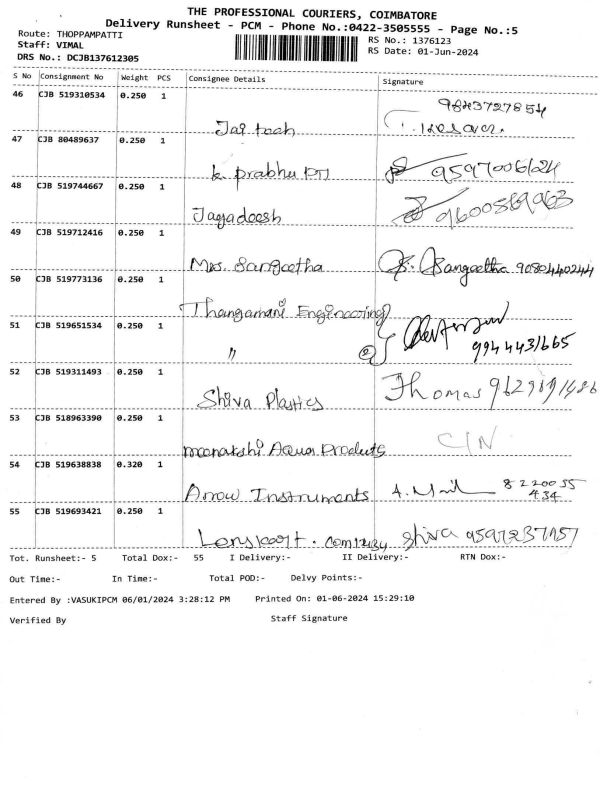 THE PROFESSIONAL COURIERS, COIMBATORE
Delivery Runsheet - PCM - Phone No.:0422-3505555 - Page No.:5
Route: THOPPAMPATTI RS No.: 1376123
Staff: VIMAL RS Date: 01-Jun-2024
DRS No.: DCJB137612305
S No Consignment No Weight PCS Consignee Details Signature
46 CJB 519310534 0.250 1 9843727854
Jai tech
47 CJB 80489637 0.250 1
k. prabhu
48 CJB 519744667 0.250 1
Jagadeesh
49 CJB 519712416 0.250 1
Mrs. Sangeetha Sangeetha 9080440244
50 CJB 519773136 0.250 1
Thangamani Engineering
51 CJB 519651534 0.250 1
" 2 9944431665
52 CJB 519311493 0.250 1
Shiva Plastics Thomas
53 CJB 518963390 0.250 1
meenakshi Aqua Products C/N
54 CJB 519638838 0.320 1
Arrow Instruments 8220055
434
55 CJB 519693421 0.250 1
Lenskart. com shiva
Tot. Runsheet:- 5 Total Dox:- 55 I Delivery:- II Delivery:- RTN Dox:-
Out Time:- In Time:- Total POD:- Delvy Points:-
Entered By :VASUKIPCM 06/01/2024 3:28:12 PM Printed On: 01-06-2024 15:29:10
Verified By Staff Signature